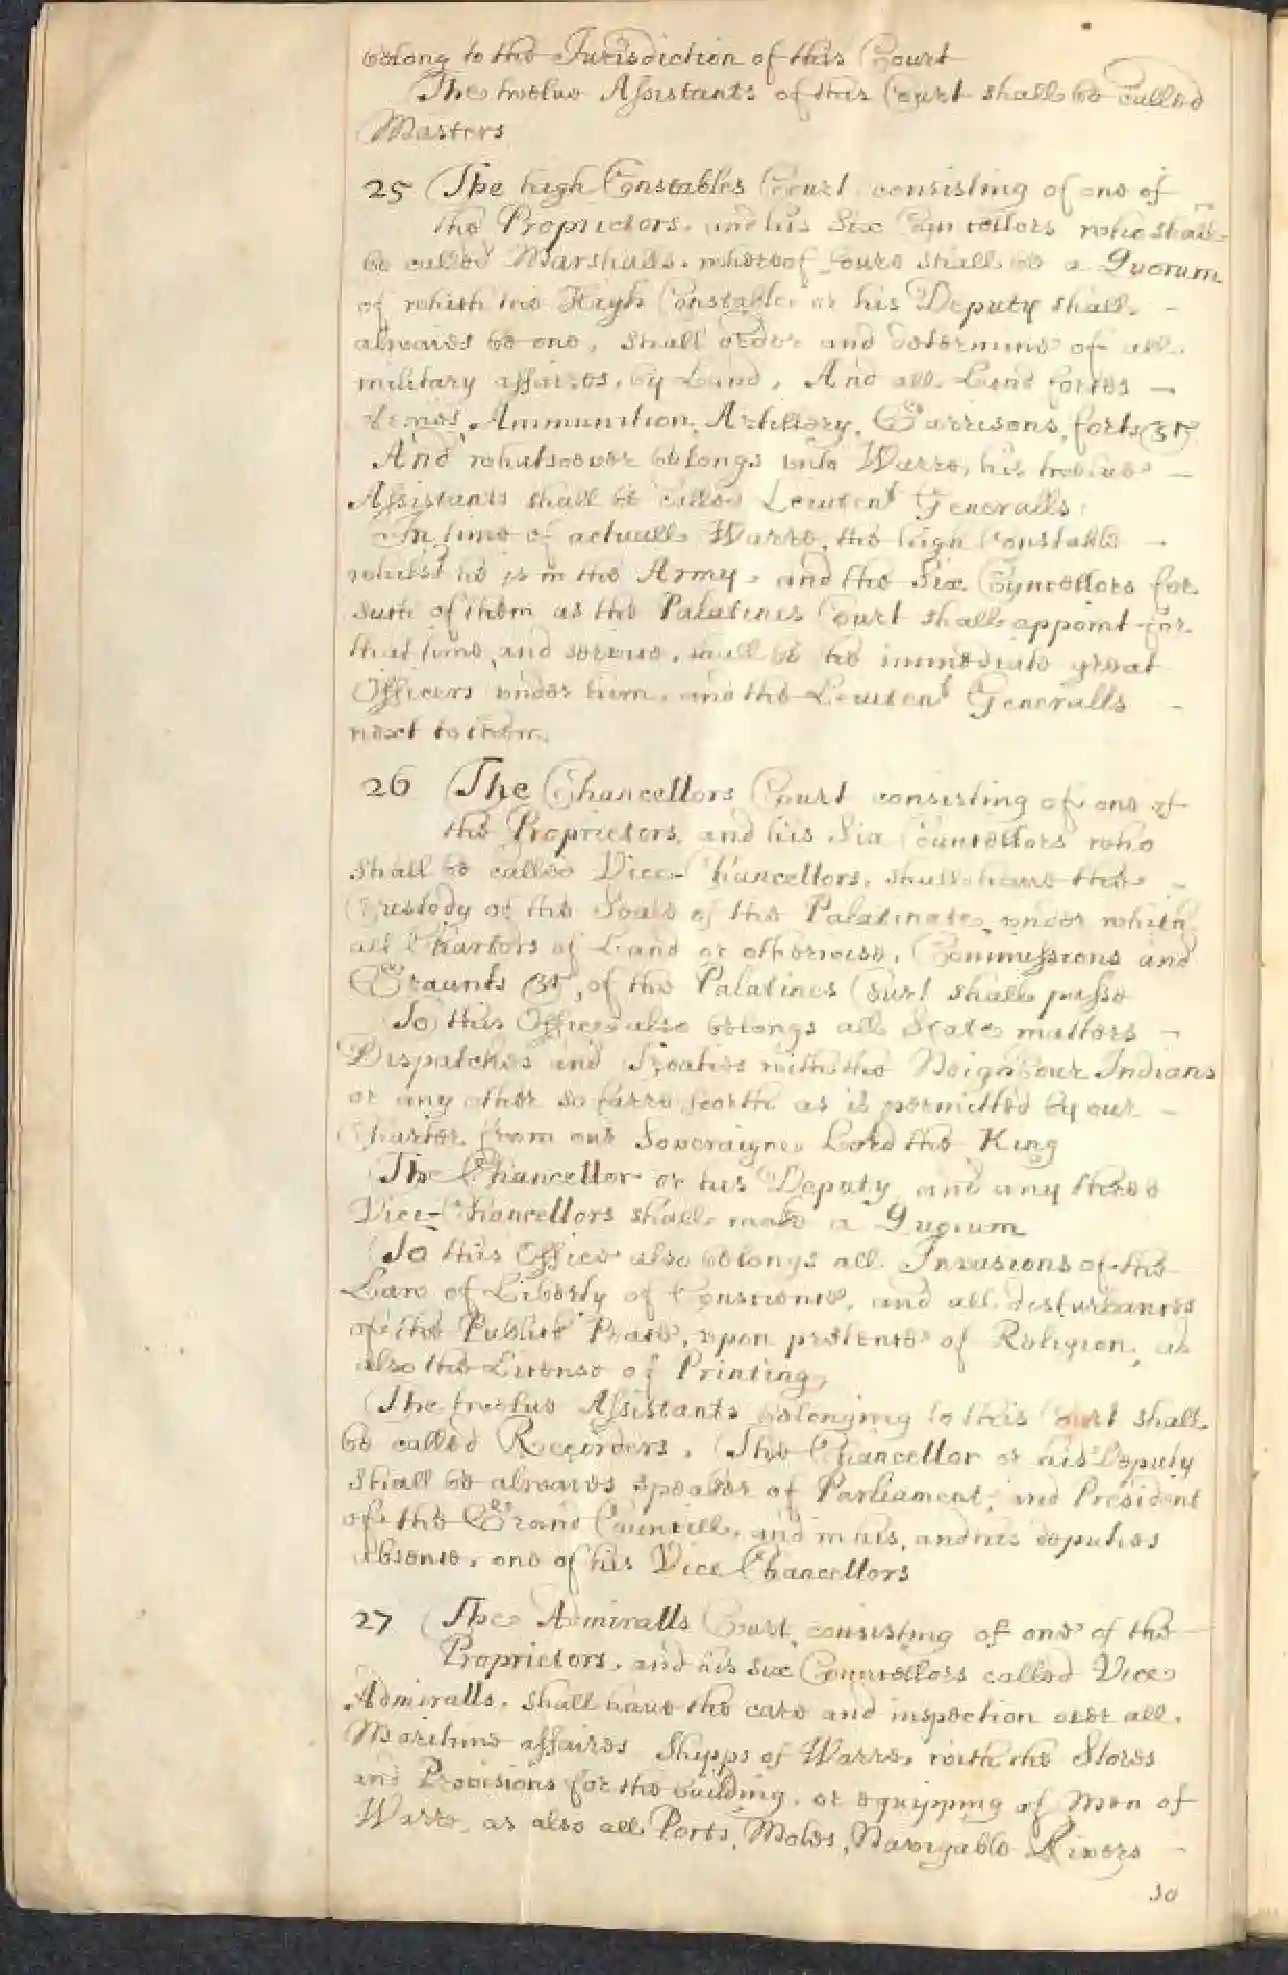 belong to the Jurisdiction of this Court
The twelve Assistants of this Court shall be called
Masters
25 The high Constables Court consisting of one of
the Proprietors, and his Six Councellors who shall
be called Marshalls. whereof foure shall be a Quorum
of which the High Constable or his Deputy shall
alwaies be one, shall order and determine of all
military affaires, by Land, And all Land forces
Armes, Ammunition, Artillery, Garrisons, forts &c
And whatsoever belongs unto Warre, his twelve
Assistants shall be called Leiutent Generalls
In time of actuall Warre, the high Constable
whilst he is in the Army, and the Six Councellors for
such of them as the Palatines Court shall appoint for
that time, and service, shall be the immediate great
Officers under him, and the Leiutent Generalls
next to them.
26 The Chancellors Court consisting of one of
the Proprietors, and his Six Councellors who
shall be called Vice-Chancellors, shall have the
Custody of the Seale of the Palatinate, under which
all Charters of Land or otherwise, Commissions and
Graunts &c, of the Palatines Court shall passe
To this Office also belongs all State matters
Dispatches and Treaties with the Neighbour Indians
or any other so farre forth as is permitted by our
Charter from our Soveraigne Lord the King
The Chancellor or his Deputy and any three
Vice-Chancellors shall make a Quorum
To this Office also belongs all Invasions of the
Law of Liberty of Conscience, and all disturbances
of the Publick Peace, upon pretence of Religion, as
also the License of Printing,
The twelve Assistants belonging to this Court shall
be called Recorders. The Chancellor or his Deputy
shall be alwaies speaker of Parliament, and President
of the Grand Councill, and in his, and his deputies
absense, one of his Vice Chancellors
27 The Admiralls Court, consisting of one of the
Proprietors, and his six Councellors called Vice
Admiralls, shall have the care and inspection over all
Maritime affaires Shipps of Warre, with the Stores
and Provisions for the building, or equipping of Men of
Warre, as also all Ports, Moles, Navigable Rivers
so